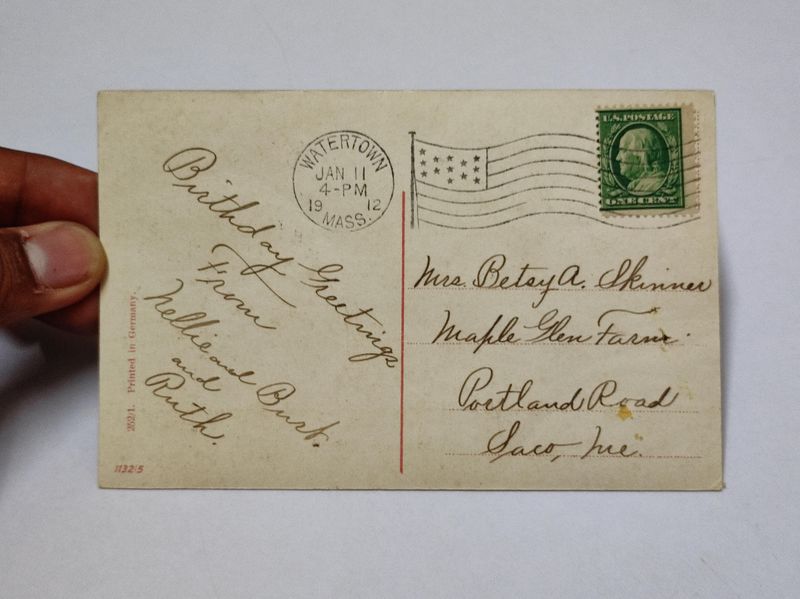 WATERTOWN
JAN 11
4-PM
19 12
MASS.
U.S. POSTAGE
ONE CENT
Birthday Greetings
From
Nellie and Burt.
and
Ruth.
Mrs. Betsy A. Skinner
Maple Glen Farm.
Portland Road
Saco, Me.
252/1. Printed in Germany.
11325